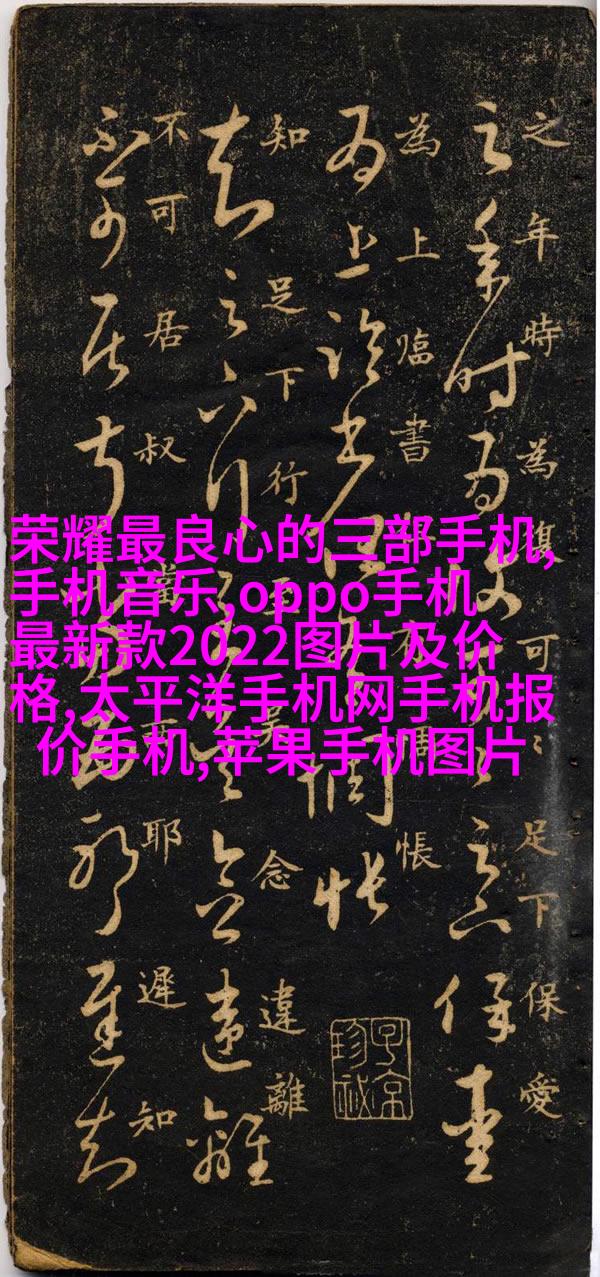 荣耀最良心的三部手机,
手机音乐,oppo手机
最新款2022图片及价
格,太平洋手机网手机报
价手机,苹果手机图片
之年時為復可〻足下保愛
為上臨書但有惆悵
知足下行至吳念違離
不可居叔當西耶遲知